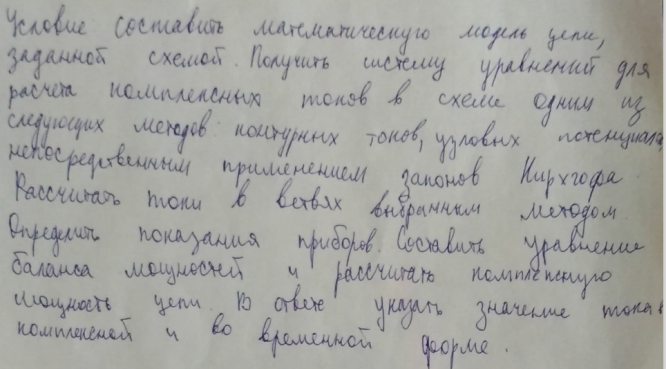 Условие составить математическую модель цепи,
заданной схемой. Получить систему уравнений для
расчета комплексных токов в схеме одним из
следующих методов: контурных токов, узловых потенциала,
непосредственным применением законов Кирхгофа
Рассчитать токи в ветвях выбранным методом
Определить показания приборов. Составить уравнение
баланса мощностей и рассчитать комплексную
мощность цепи. В ответе указать значение токов в
комплексной и во временной форме.